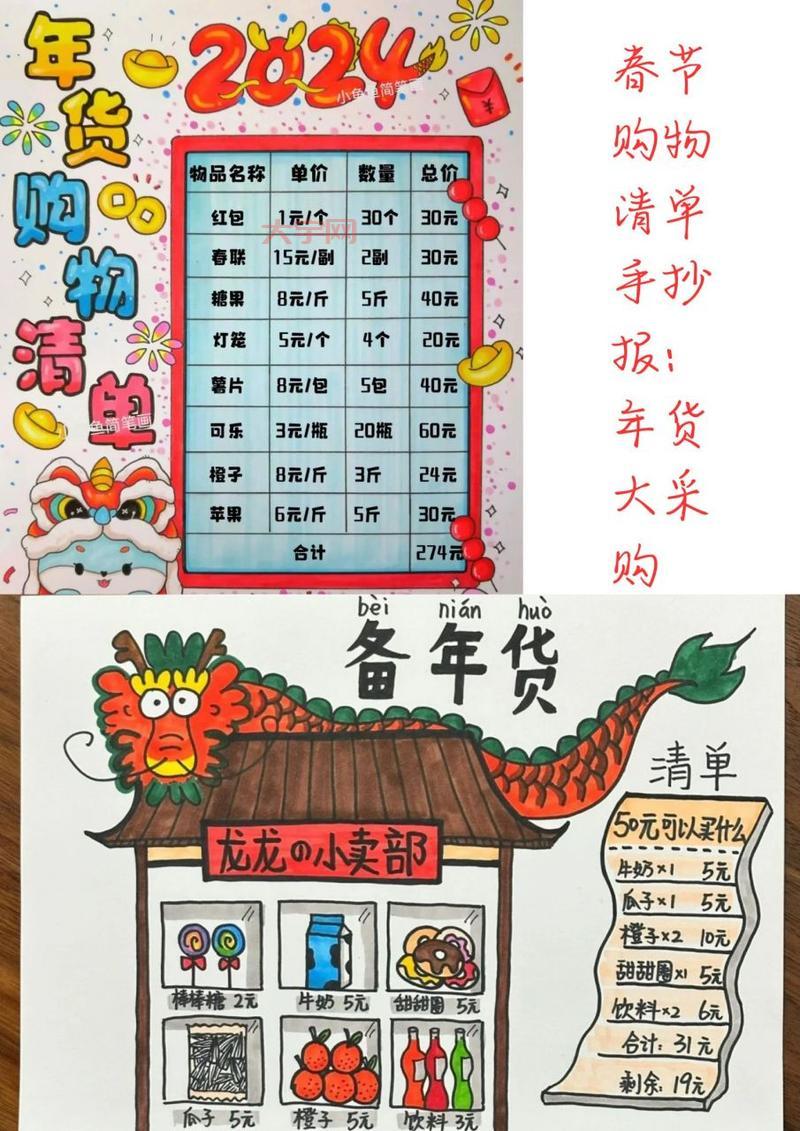 年货购物清单
2024
小鱼鱼简笔画
物品名称 单价 数量 总价
红包 1元/个 30个 30元
大宇网
春联 15元/副 2副 30元
糖果 8元/斤 5斤 40元
灯笼 5元/个 4个 20元
薯片 8元/包 5包 40元
可乐 3元/瓶 20瓶 60元
橙子 8元/斤 3斤 24元
苹果 6元/斤 5斤 30元
合计 274元
春节
购物
清单
手抄
报:
年货
大采
购
bèi nián huò
备年货
龙龙の小卖部
棒棒糖 2元
牛奶 5元
甜甜圈 5元
瓜子 5元
橙子 5元
饮料 3元
清单
50元可以买什么
牛奶×1 5元
瓜子×1 5元
橙子×2 10元
甜甜圈×1 5元
饮料×2 6元
合计:31元
剩余:19元